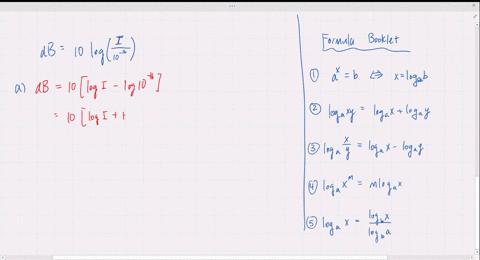 dB = 10 log(I/10⁻¹⁶)
a) dB = 10[log I - log 10⁻¹⁶]
= 10[log I + 1
Formula Booklet
① aˣ = b ⇔ x = logₐb
② logₐxy = logₐx + logₐy
③ logₐ x/y = logₐx - logₐy
④ logₐxᵐ = m logₐx
⑤ logₐx = log_b x / log_b a